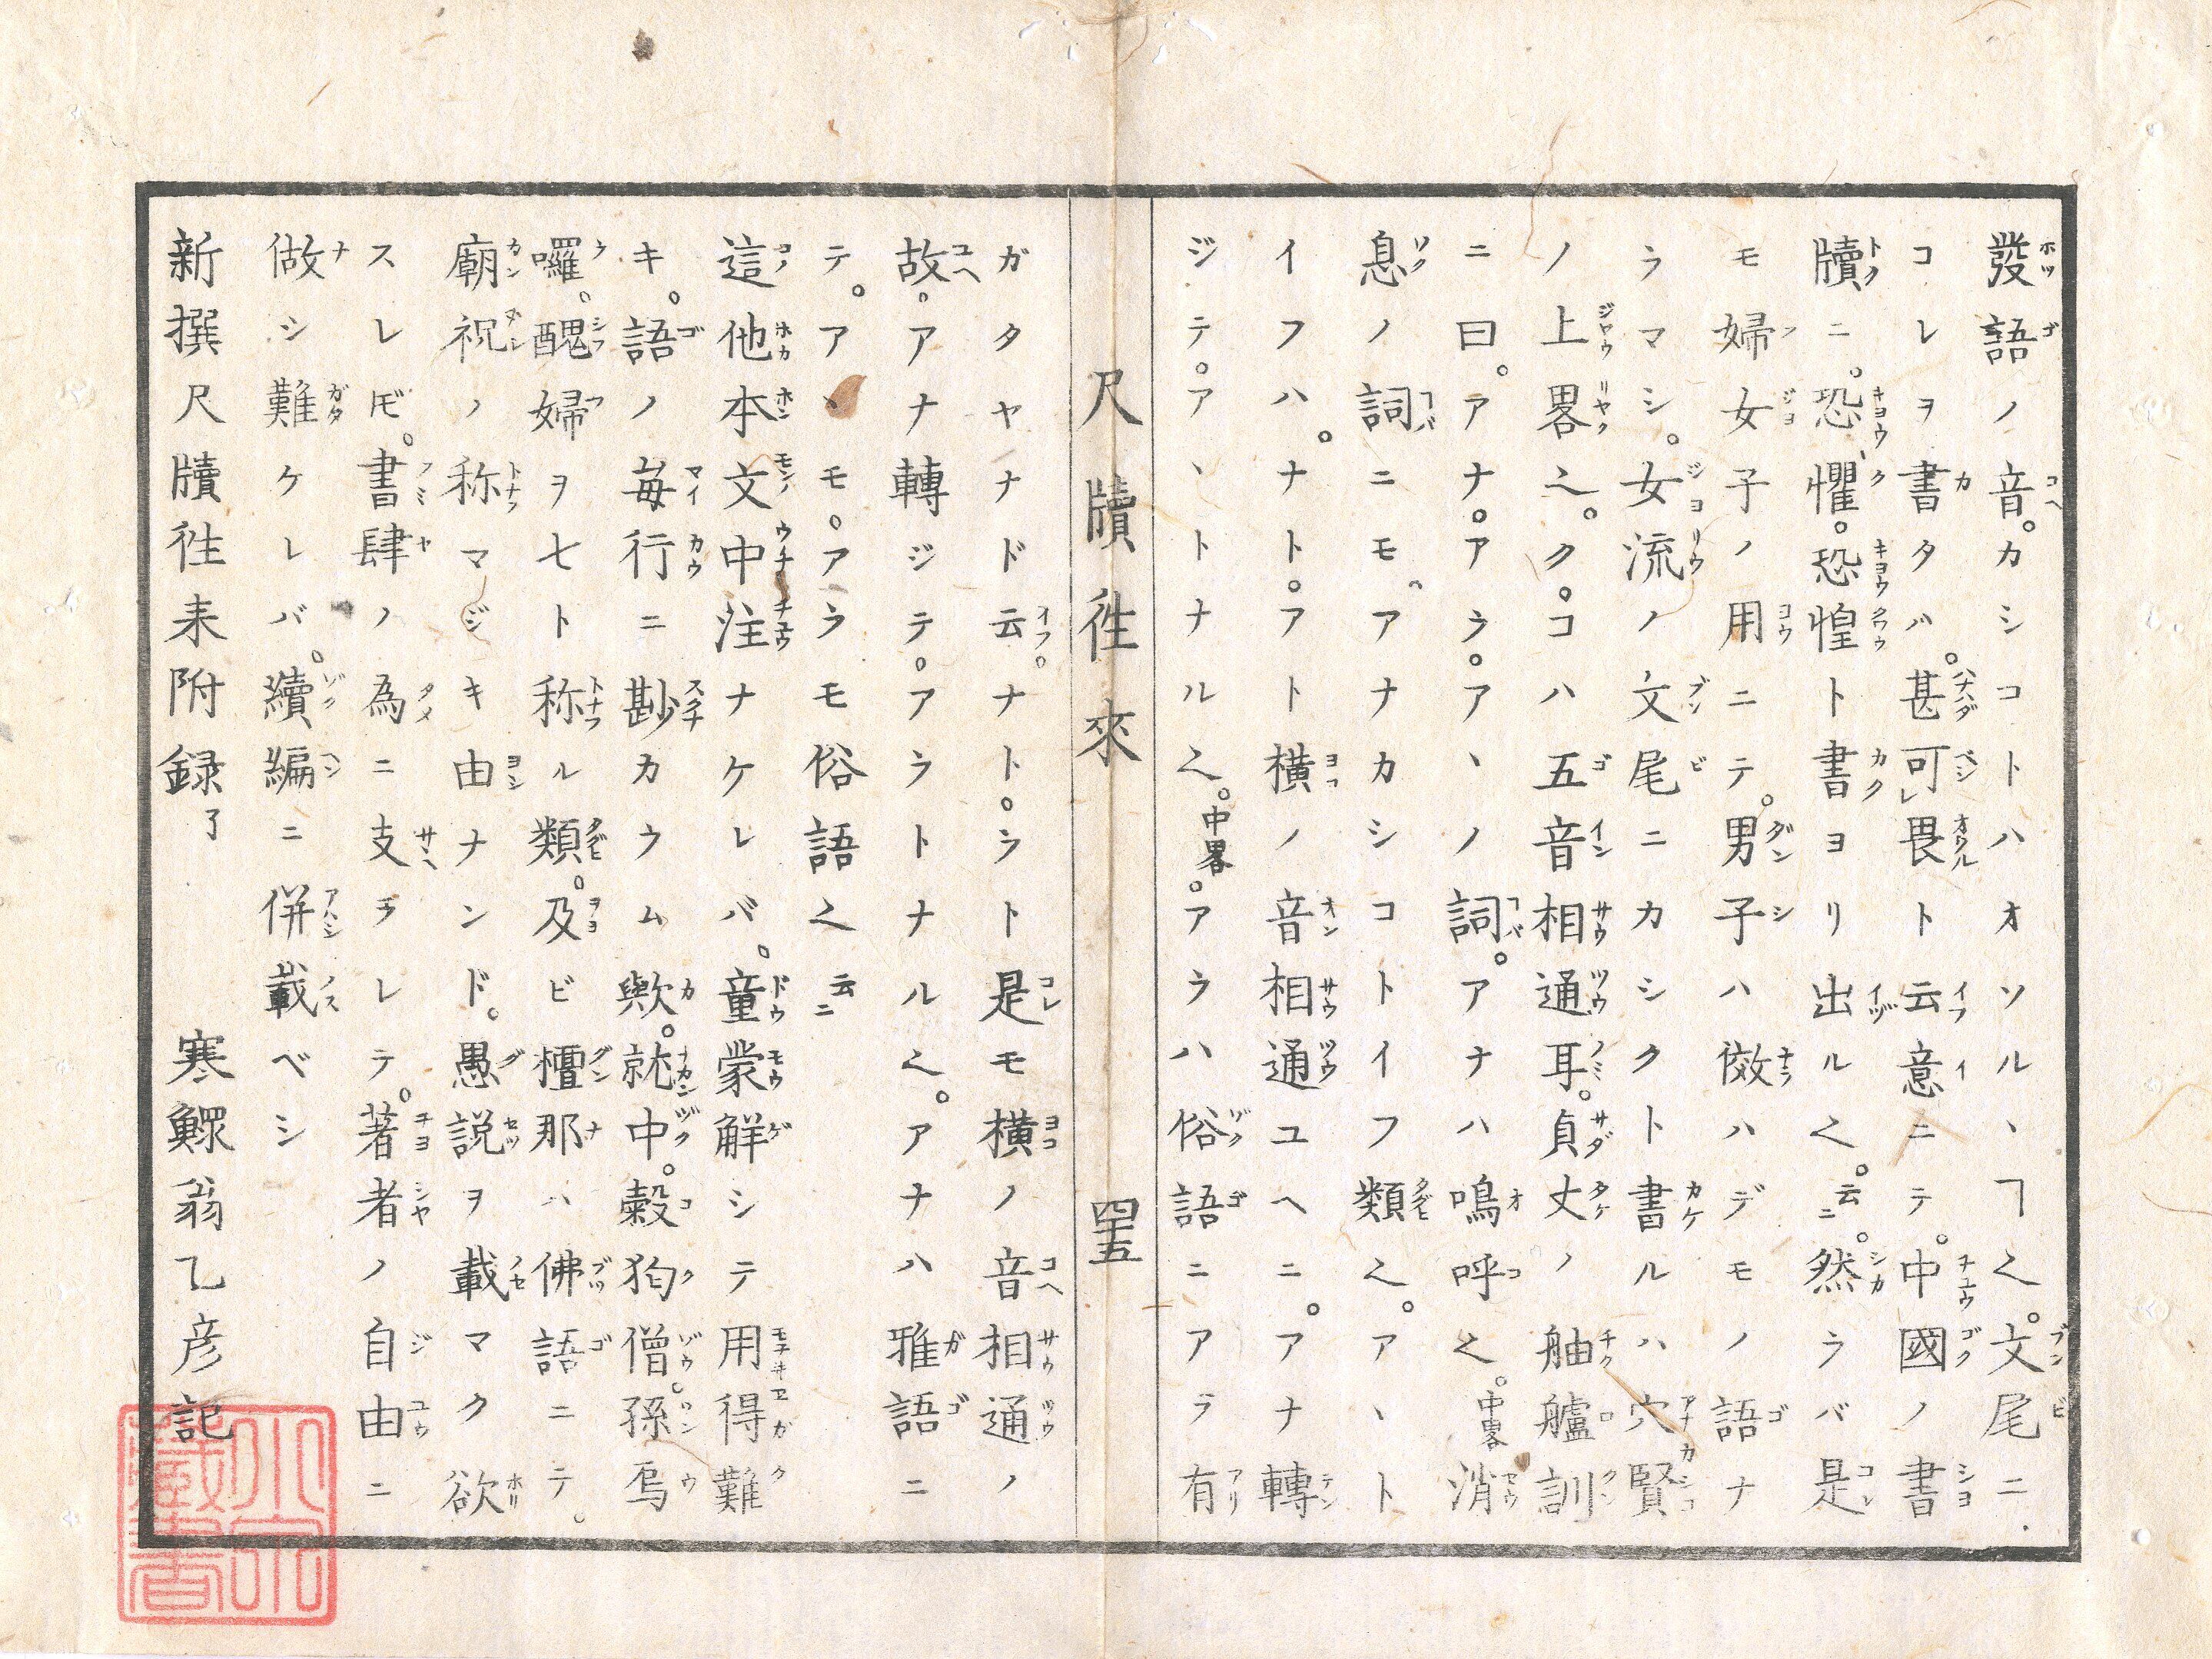 發語ノ音。カシコトハオソルヽヿ也。文尾ニ
コレヲ書タバ。甚可レ畏ト云意ニテ。中國ノ書
牘ニ。恐懼。恐惶ト書ヨリ出ル也。云云。然ラバ是
モ婦女子ノ用ニテ。男子ハ傚ハデモノ語ナ
ラマシ。女流ノ文尾ニカシクト書ルハ穴賢
ノ上畧也。ク。コハ五音相通耳。貞丈ノ舳艫訓
ニ曰。アナ。アラ。アヽノ詞。アナハ鳴呼也。中畧消
息ノ詞ニモ。アナカシコトイフ類也。アヽト
イフハ。ナト。アト横ノ音相通ユヘニ。アナ轉
ジテ。アヽトナル也。中畧。アラハ俗語ニアラ有
尺牘徃來 四十五
ガタヤナド云。ナト。ラト是モ横ノ音相通ノ
故。アナ轉ジテ。アラトナル也。アナハ雅語ニ
テ。アヽモ。アラモ俗語也云云
這他本文中注ナケレバ。童蒙解シテ用得難
キ。語ノ毎行ニ尠カラム歟。就中。穀狗僧。孫焉
囉。醜婦ヲ七ト称ル類。及ビ檀那ハ佛語ニテ。
廟祝ノ称マジキ由ナンド。愚説ヲ載マク欲
スレ𪜈。書肆ノ為ニ支ヘラレテ。著者ノ自由ニ
做シ難ケレバ。續編ニ併載ベシ
新撰尺牘徃耒附録了 寒鰥翁乙彦記